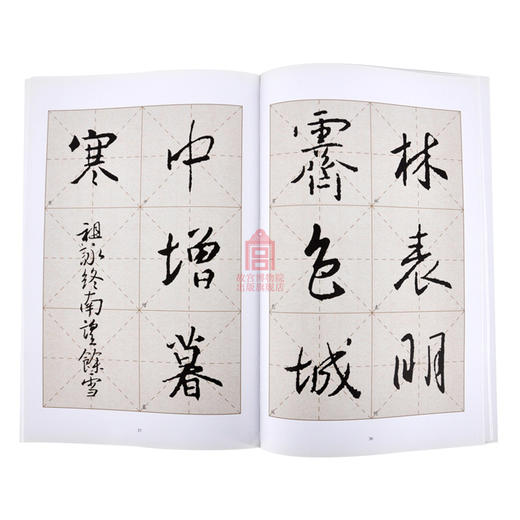 林表明
霽色城
中增暮
寒
祖詠終南望餘雪
故宫博物院
出版旗舰店